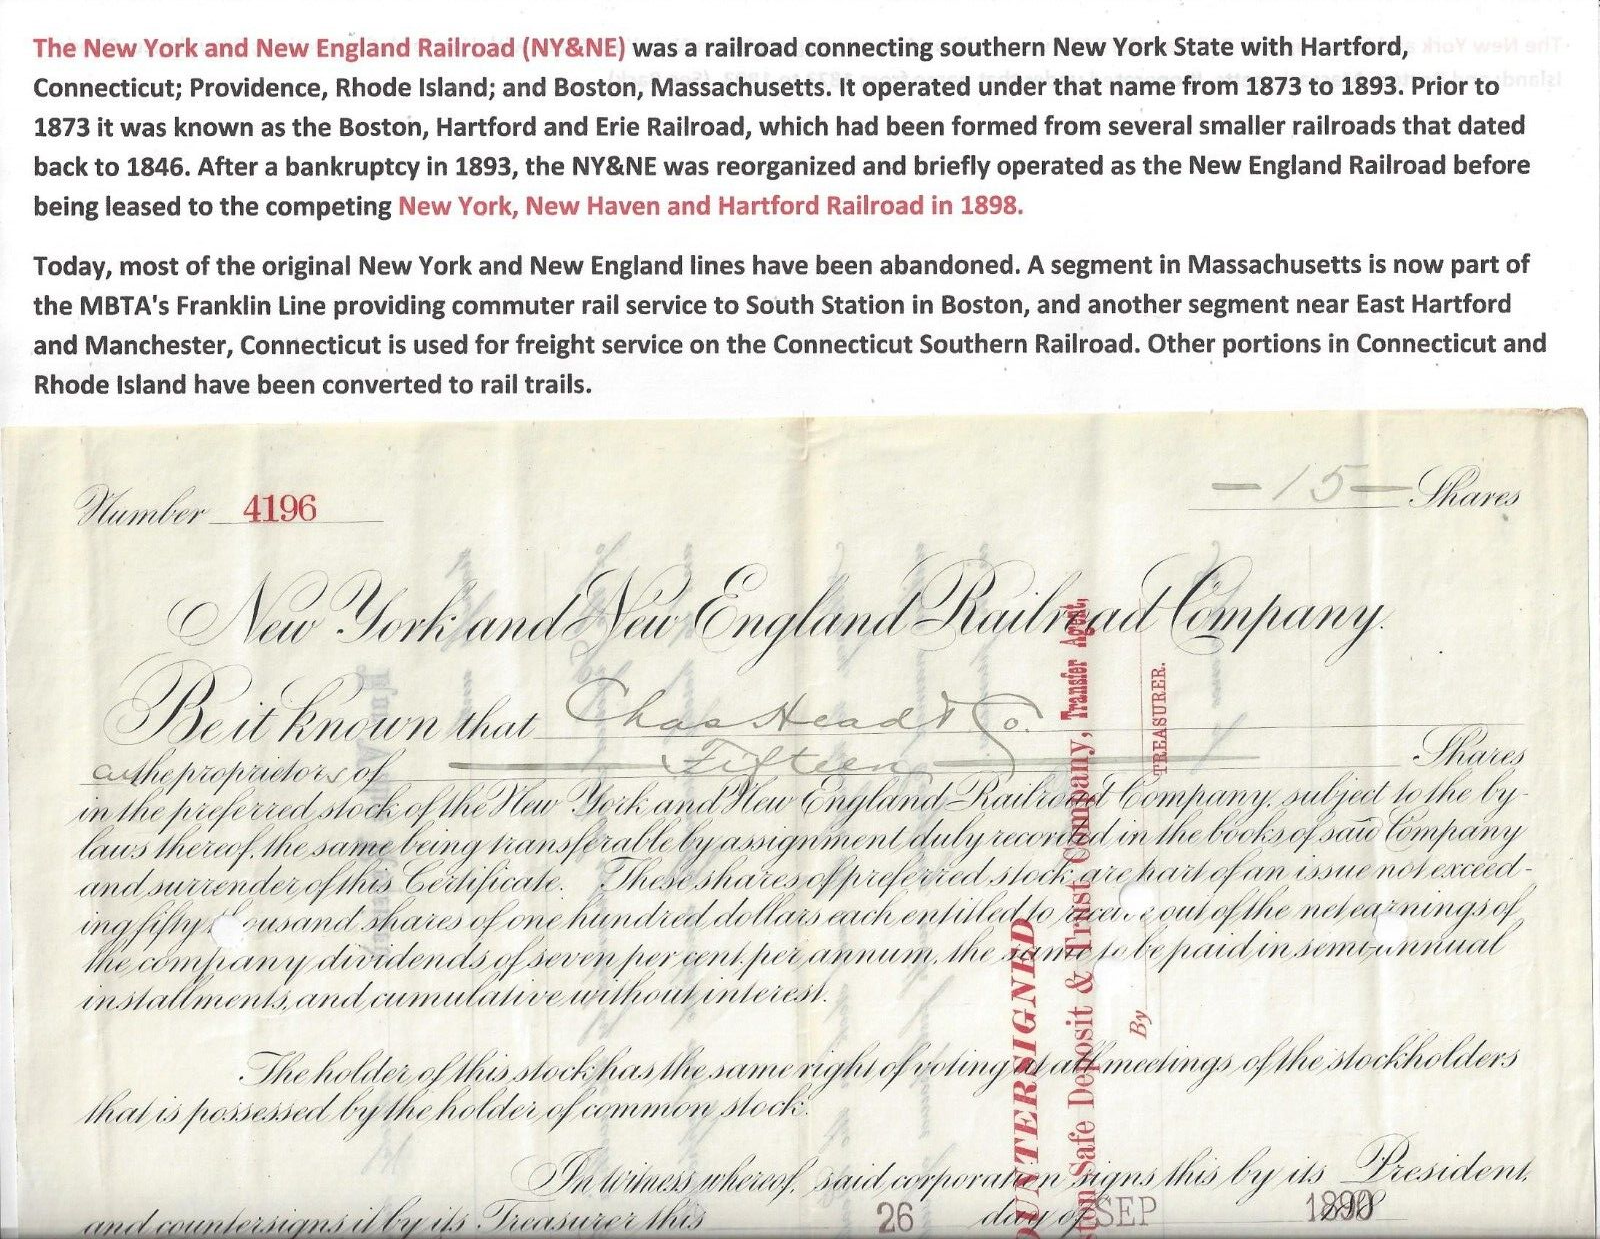 The New York and New England Railroad (NY&NE) was a railroad connecting southern New York State with Hartford,
Connecticut; Providence, Rhode Island; and Boston, Massachusetts. It operated under that name from 1873 to 1893. Prior to
1873 it was known as the Boston, Hartford and Erie Railroad, which had been formed from several smaller railroads that dated
back to 1846. After a bankruptcy in 1893, the NY&NE was reorganized and briefly operated as the New England Railroad before
being leased to the competing New York, New Haven and Hartford Railroad in 1898.
Today, most of the original New York and New England lines have been abandoned. A segment in Massachusetts is now part of
the MBTA's Franklin Line providing commuter rail service to South Station in Boston, and another segment near East Hartford
and Manchester, Connecticut is used for freight service on the Connecticut Southern Railroad. Other portions in Connecticut and
Rhode Island have been converted to rail trails.
Number 4196 – 15 – Shares
New York and New England Railroad Company.
Be it known that Chas Head & Co.
are the proprietors of Fifteen Shares
in the preferred stock of the New York and New England Railroad Company, subject to the by-
laws thereof, the same being transferable by assignment duly recorded in the books of said Company
and surrender of this Certificate. These shares of preferred stock are part of an issue not exceed-
ing fifty thousand shares of one hundred dollars each entitled to receive out of the net earnings of
the company dividends of seven per cent. per annum, the same to be paid in semi-annual
installments, and cumulative without interest.
The holder of this stock has the same right of voting at all meetings of the stockholders
that is possessed by the holder of common stock.
In witness whereof, said corporation signs this by its President,
and countersigns it by its Treasurer this 26 day of SEP 1890
COUNTERSIGNED
Safe Deposit & Trust Company, Transfer Agent,
By TREASURER.